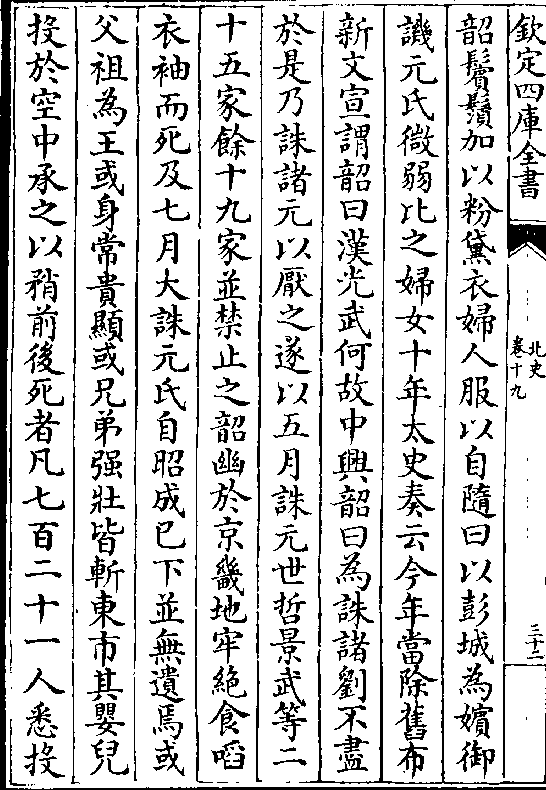 欽定四庫全書
北史
卷十九
三十二
韶鬢鬚加以粉黛衣婦人服以自隨曰以彭城為嬪御
譏元氏微弱比之婦女十年太史奏云今年當除舊布
新文宣謂韶曰漢光武何故中興韶曰為誅諸劉不盡
於是乃誅諸元以厭之遂以五月誅元世哲景武等二
十五家餘十九家並禁止之韶幽於京畿地牢絶食㗖
衣袖而死及七月大誅元氏自昭成已下並無遺焉或
父祖為王或身常貴顯或兄弟强壯皆斬東市其嬰兒
投於空中承之以矟前後死者凡七百二十一人悉投